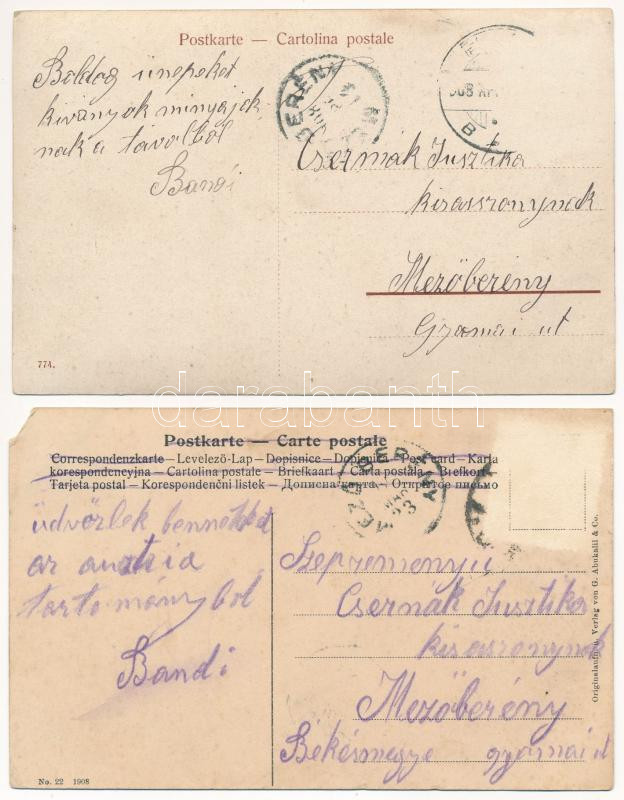 Postkarte — Cartolina postale
Boldog ünepeket
kivanyok minyajok
nak a tavolbol
Bandi
BERÉNY
908
B
Csermák Jusztika
kisasszonynak
Mezőberény
Gyomai ut
774.
darabanth
Postkarte — Carte postale
Correspondenzkarte – Levelező-Lap – Dopisnice – Dopisnica – Post card – Karta
korespondencyjna – Cartolina postale – Briefkaart – Carta postala – Brefkort
Tarjeta postal – Korespondenční listek – Дописна карта – Открытое письмо
MEZŐBERÉNY
23
üdvözlek benneteket
az austria
tartománybol
Bandi
Csermák Jusztika
kisasszonynak
Mezőberény
Békésmegye gyomai ut
Originalaufn. u. Verlag von G. Abukalil & Co.
No. 22 1908